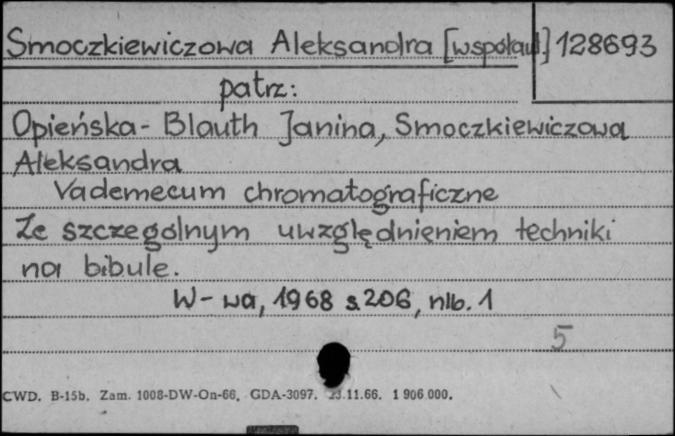 Smoczkiewiczowa Aleksandra [współaut] 128693
patrz:
Opieńska-Blauth Janina, Smoczkiewiczowa
Aleksandra
Vademecum chromatograficzne
Ze szczegolnym uwzględnieniem techniki
na bibule.
W-wa, 1968 s 206, nlb. 1
5
CWD. B-15b. Zam. 1008-DW-On-66. GDA-3097. 23.11.66. 1 906 000.